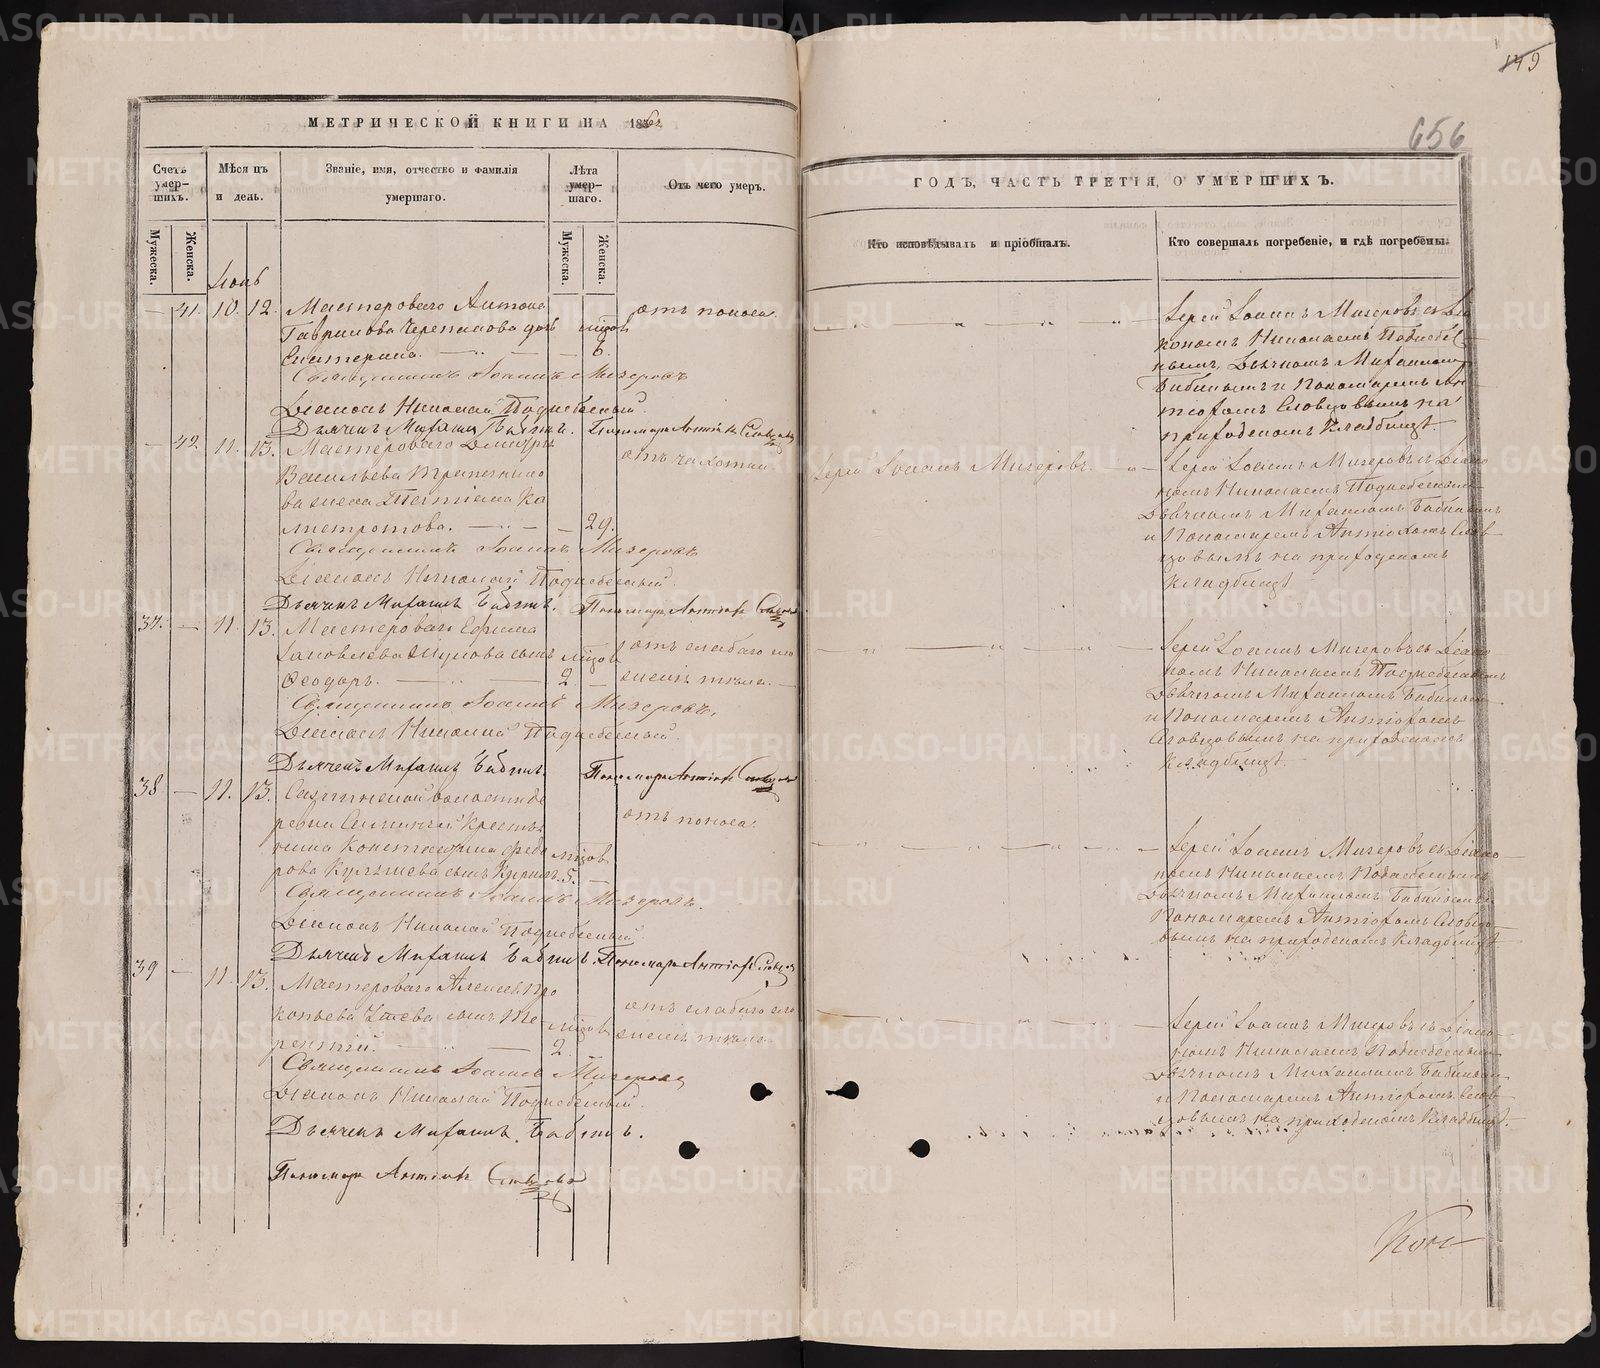 МЕТРИЧЕСКОЙ КНИГИ НА 186
Счетъ умерших.
Мѣсяцъ и день.
Званіе, имя, отчество и фамилія умершаго.
Лѣта умершаго.
Отъ чего умеръ.
Мужеска.
Женска.
Мужеска.
Женска.
Іюнь
— 41. 10. 12. Мастероваго Антона
Гаврилова Черепанова дочь
Екатерина. 6. отъ поноса.
Священникъ Іоаннъ Мизеровъ
Діаконъ Николай Поднебесный.
Дьячекъ Михаилъ Бабинъ. Пономарь Антіохъ Словцовъ
— 42. 11. 13. Мастероваго
Васильева
жена
29. отъ чахотки
Священникъ Іоаннъ Мизеровъ
Діаконъ Николай Поднебесный.
Дьячекъ Михаилъ Бабинъ. Пономарь Антіохъ Словцовъ
37. — 11. 13. Мастероваго Ефима
Яковлева сынъ
Ѳеодоръ. 2. отъ слабаго сло
женія тѣла.
Священникъ Іоаннъ Мизеровъ,
Діаконъ Николай Поднебесный.
Дьячекъ Михаилъ Бабинъ. Пономарь Антіохъ Словцовъ
38 — 11. 13. волости де
ревни крестья
нина Константина Федо
рова сынъ 5. отъ поноса.
Священникъ Іоаннъ Мизеровъ.
Діаконъ Николай Поднебесный.
Дьячекъ Михаилъ Бабинъ. Пономарь Антіохъ Словцовъ
39 — 11. 13. Мастероваго Алексѣя Про
копьева сынъ Те
рентій. 2. отъ слабаго сло
женія тѣла.
Священникъ Іоаннъ Мизеровъ
Діаконъ Николай Поднебесный.
Дьячекъ Михаилъ Бабинъ.
Пономарь Антіохъ Словцовъ
149
656
ГОДЪ, ЧАСТЬ ТРЕТІЯ, О УМЕРШИХЪ.
Кто исповѣдывалъ и пріобщалъ.
Кто совершалъ погребеніе, и гдѣ погребены.
Іерей Іоаннъ Мизеровъ съ Діа
кономъ Николаемъ Поднебес
нымъ, Дьячкомъ Михаиломъ
Бабинымъ и Пономаремъ Ан
тіохомъ Словцовымъ на
приходскомъ кладбищѣ.
Іерей Іоаннъ Мизеровъ.
Іерей Іоаннъ Мизеровъ съ Діако
номъ Николаемъ Поднебеснымъ
Дьячкомъ Михаиломъ Бабинымъ
и Пономаремъ Антіохомъ Слов
цовымъ на приходскомъ
кладбищѣ.
Іерей Іоаннъ Мизеровъ съ Діако
номъ Николаемъ Поднебеснымъ
Дьячкомъ Михаиломъ Бабинымъ
и Пономаремъ Антіохомъ
Словцовымъ на приходскомъ
кладбищѣ.
Іерей Іоаннъ Мизеровъ съ Діако
номъ Николаемъ Поднебеснымъ
Дьячкомъ Михаиломъ Бабинымъ
Пономаремъ Антіохомъ Словцо
вымъ на приходскомъ кладбищѣ
Іерей Іоаннъ Мизеровъ съ Діако
номъ Николаемъ Поднебеснымъ
Дьячкомъ Михаиломъ Бабинымъ
и Пономаремъ Антіохомъ Слов
цовымъ на приходскомъ кладбищѣ.
METRIKI.GASO-URAL.RU